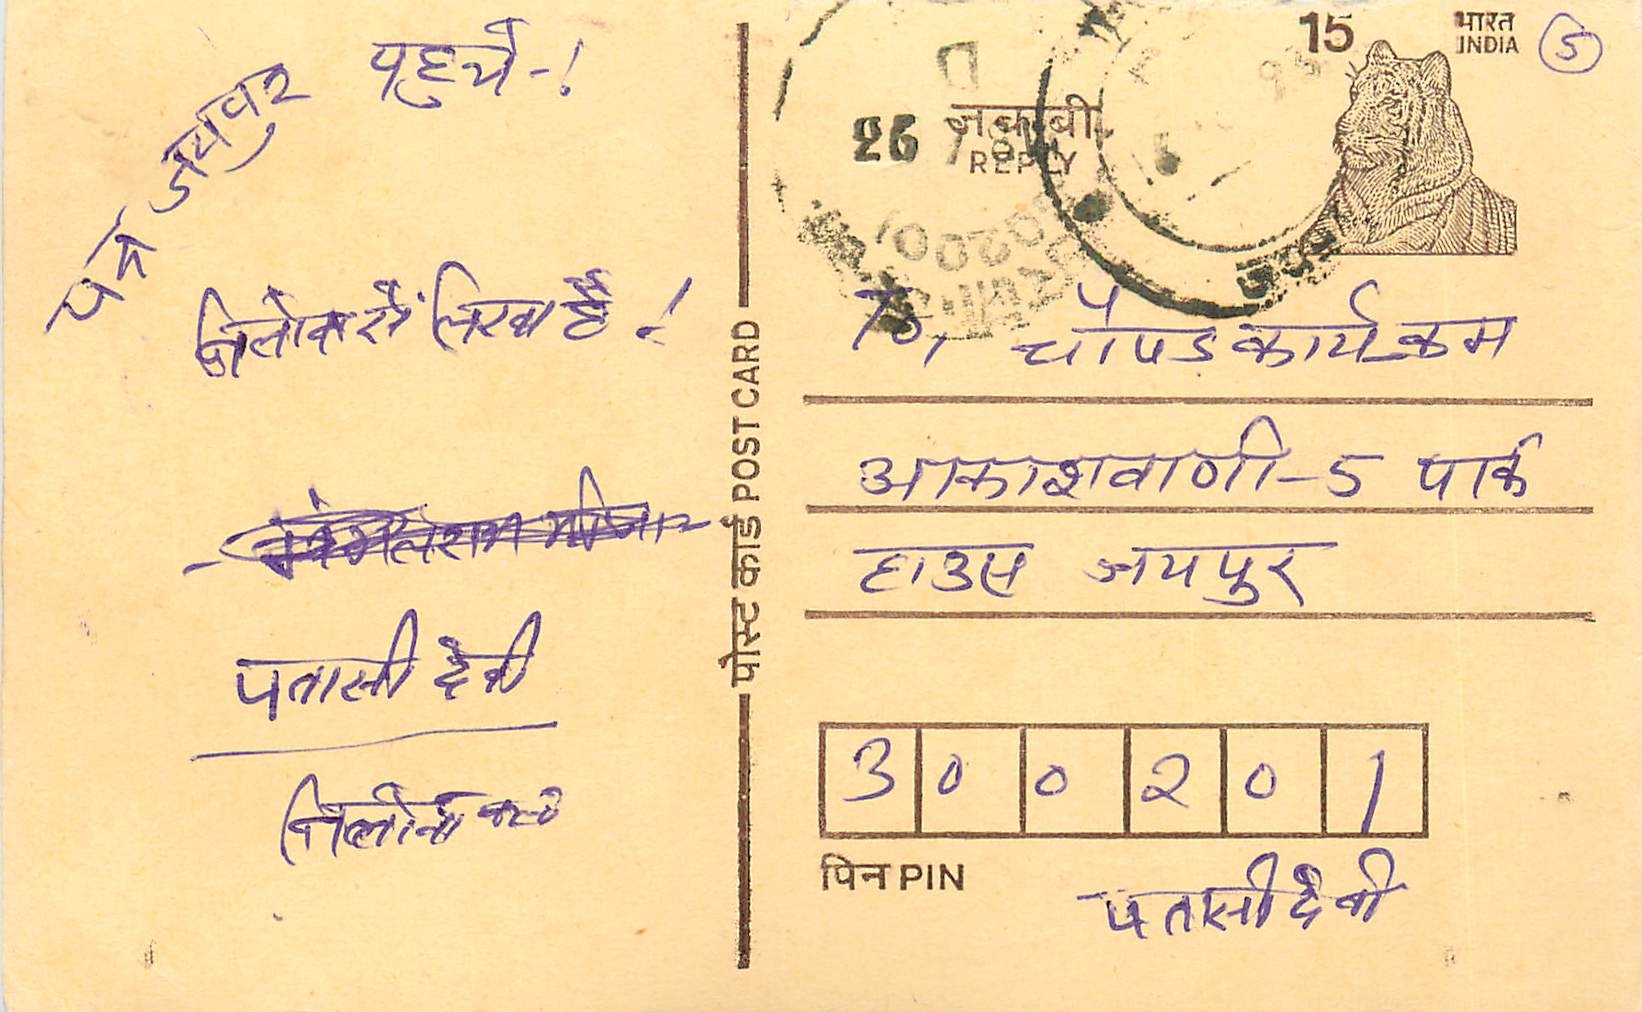 पत्र जयपुर पहुचे-!
तिलोक से लिखा है !
पतासी देवी
पोस्ट कार्ड POST CARD
15
भारत
INDIA
5
26
जवाबी
REPLY
To, चौपड कार्यक्रम
आकाशवाणी-5 पार्क
हाउस जयपुर
300201
पिन PIN
पतासी देवी